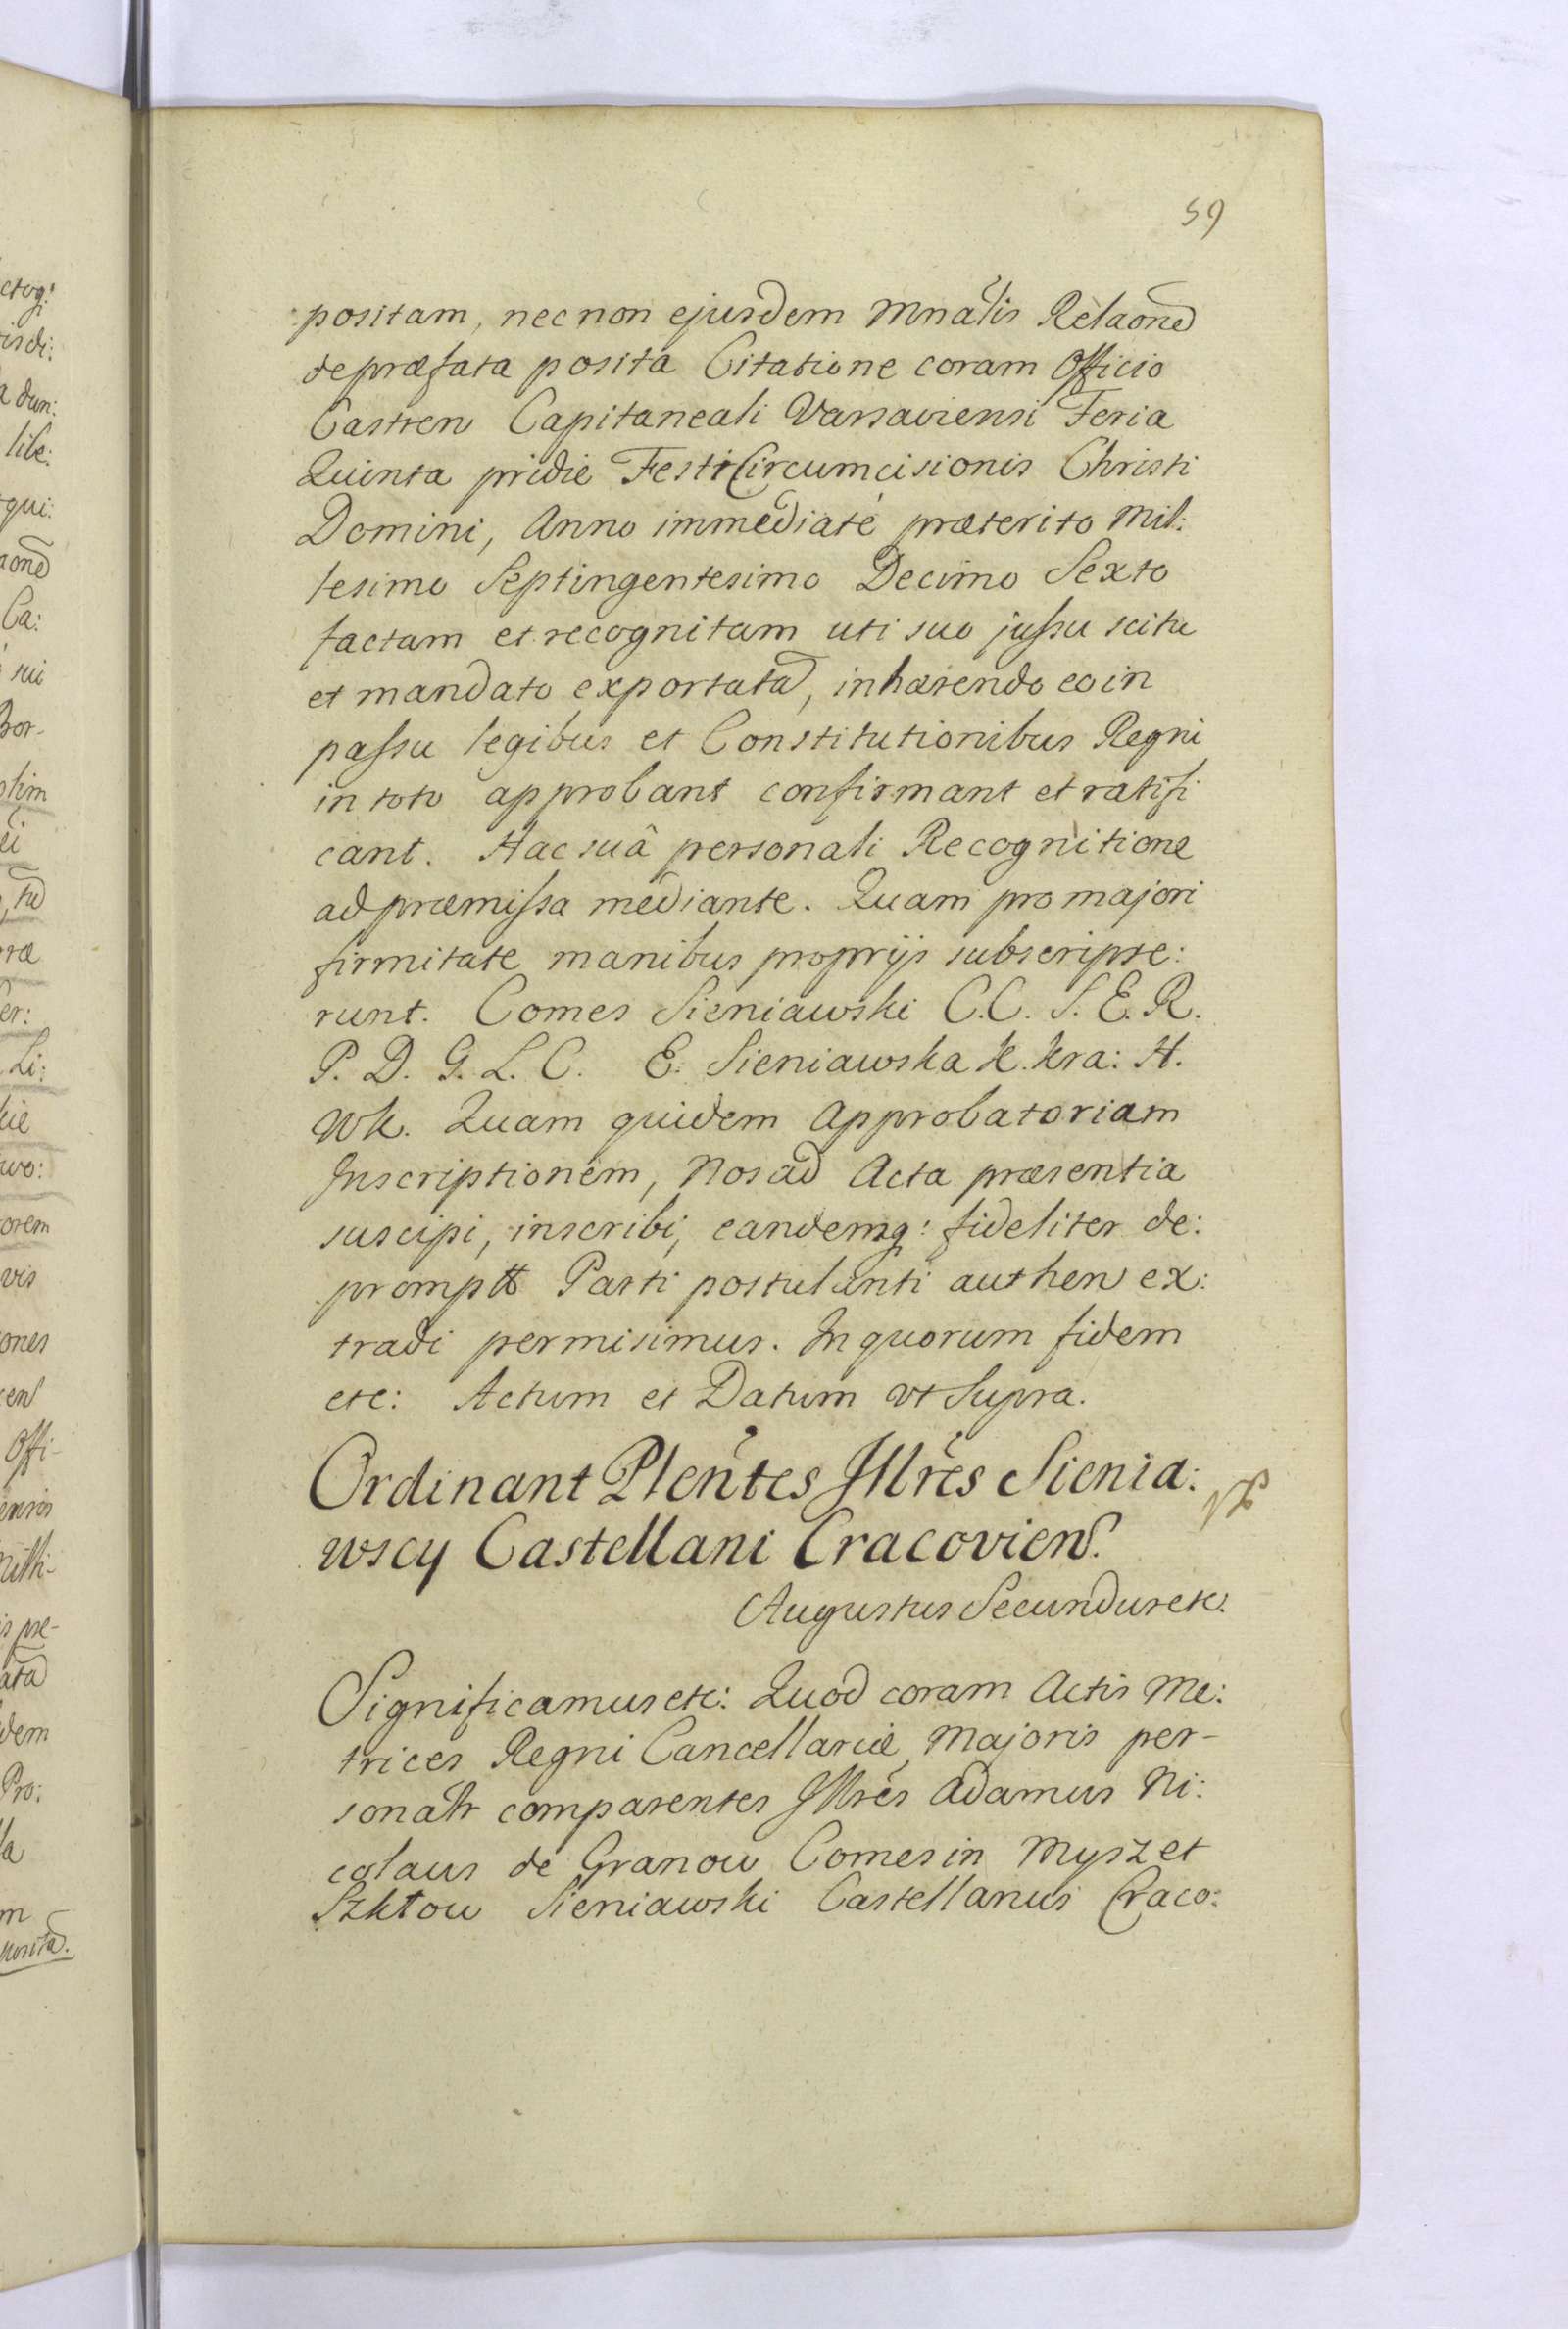 59
positam, nec non ejusdem Mnãlis Relaonẽ
de præfata posita Citatione coram Officio
Castren Capitaneali Varsaviensi Feria
Quinta pridie Festi Circumcisionis Christi
Domini, Anno immediatè præterito Mil:
lesimo Septingentesimo Decimo Sexto
factam et recognitam uti suo jussu scitu
et mandato exportatã, inhærendo eo in
passu legibus et Constitutionibus Regni
in toto approbant confirmant et ratifi
cant. Hac suâ personali Recognitione
ad præmissa mediante. Quam pro majori
firmitate manibus proprijs subscripse:
runt. Comes Sieniawski C.C. S. E. R.
P. D. G. L. C. E. Sieniawska K. Kra: H.
WK. Quam quidem Approbatoriam
Inscriptionem, Nos ad Acta præsentia
suscipi, inscribi, eandemq: fideliter de:
promptt Parti postulanti authen ex:
tradi permisimus. In quorum fidem
etc: Actum et Datum vt Supra.
Ordinant Plentes Illres Sienia:
wscy Castellani Cracovien.
Augustus Secundus etc.
Significamus etc: Quod coram Actis Me:
trices Regni Cancellariæ Majoris per-
sonalr comparentes Illres Adamus Ni:
colaus de Granow Comes in Mysz et
Szktow Sieniawski Castellanus Craco:
ctog:
isdi:
dun:
libe:
qui:
aonẽ
Ca:
sui
Bor-
olim
ei
tũ
ræ
er:
Li:
kie
wo:
orem
vis
ones
en
Offi-
ensis
is præ-
ata
dem
Pro:
la
m
posita.